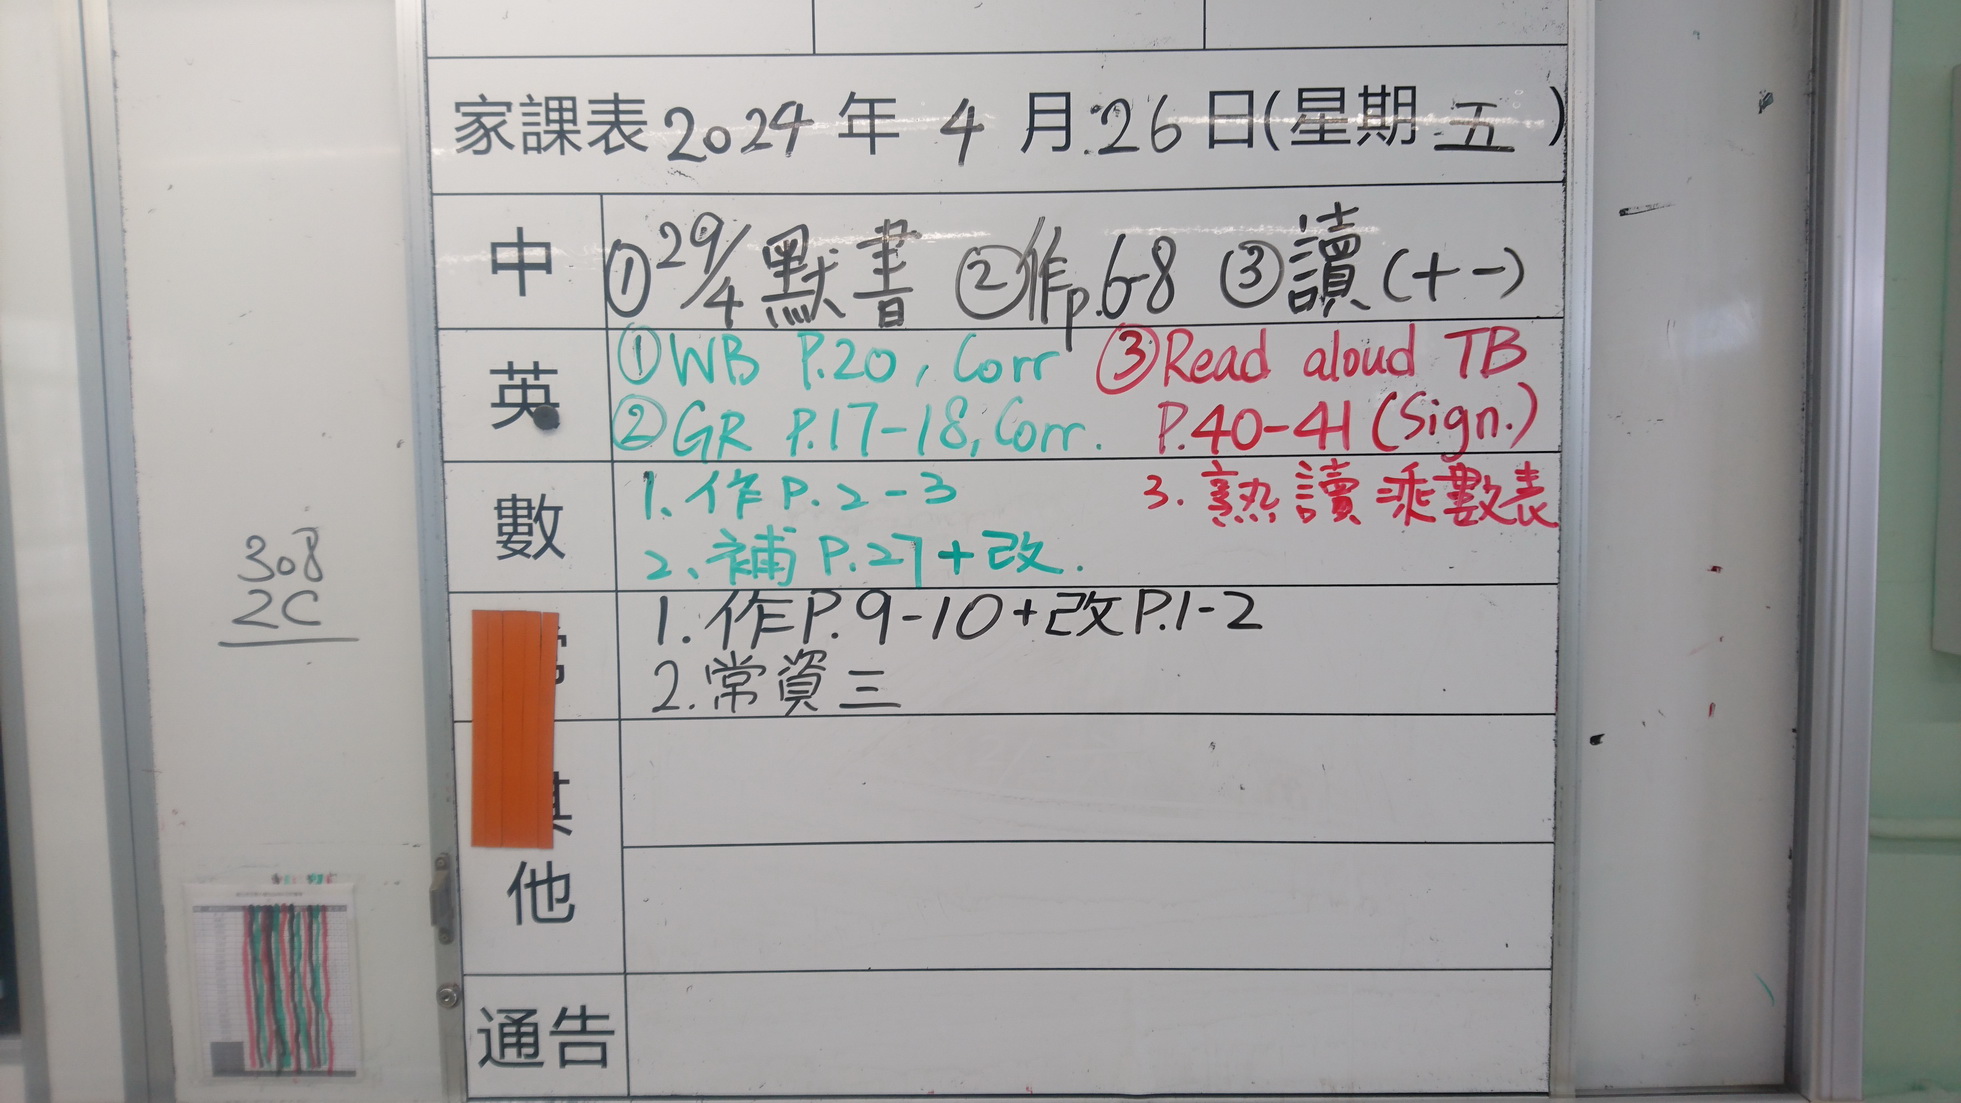 家課表2024年4月26日(星期五)
中 ①29/4默書 ②作p.6-8 ③讀(十一)
英 ①WB P.20, Corr ③Read aloud TB
②GR P.17-18, Corr. P.40-41 (Sign.)
數 1. 作P.2-3 3. 熟讀乘數表
2. 補P.27+改.
常 1. 作P.9-10+改P.1-2
2. 常資三
其他
通告
308
2C